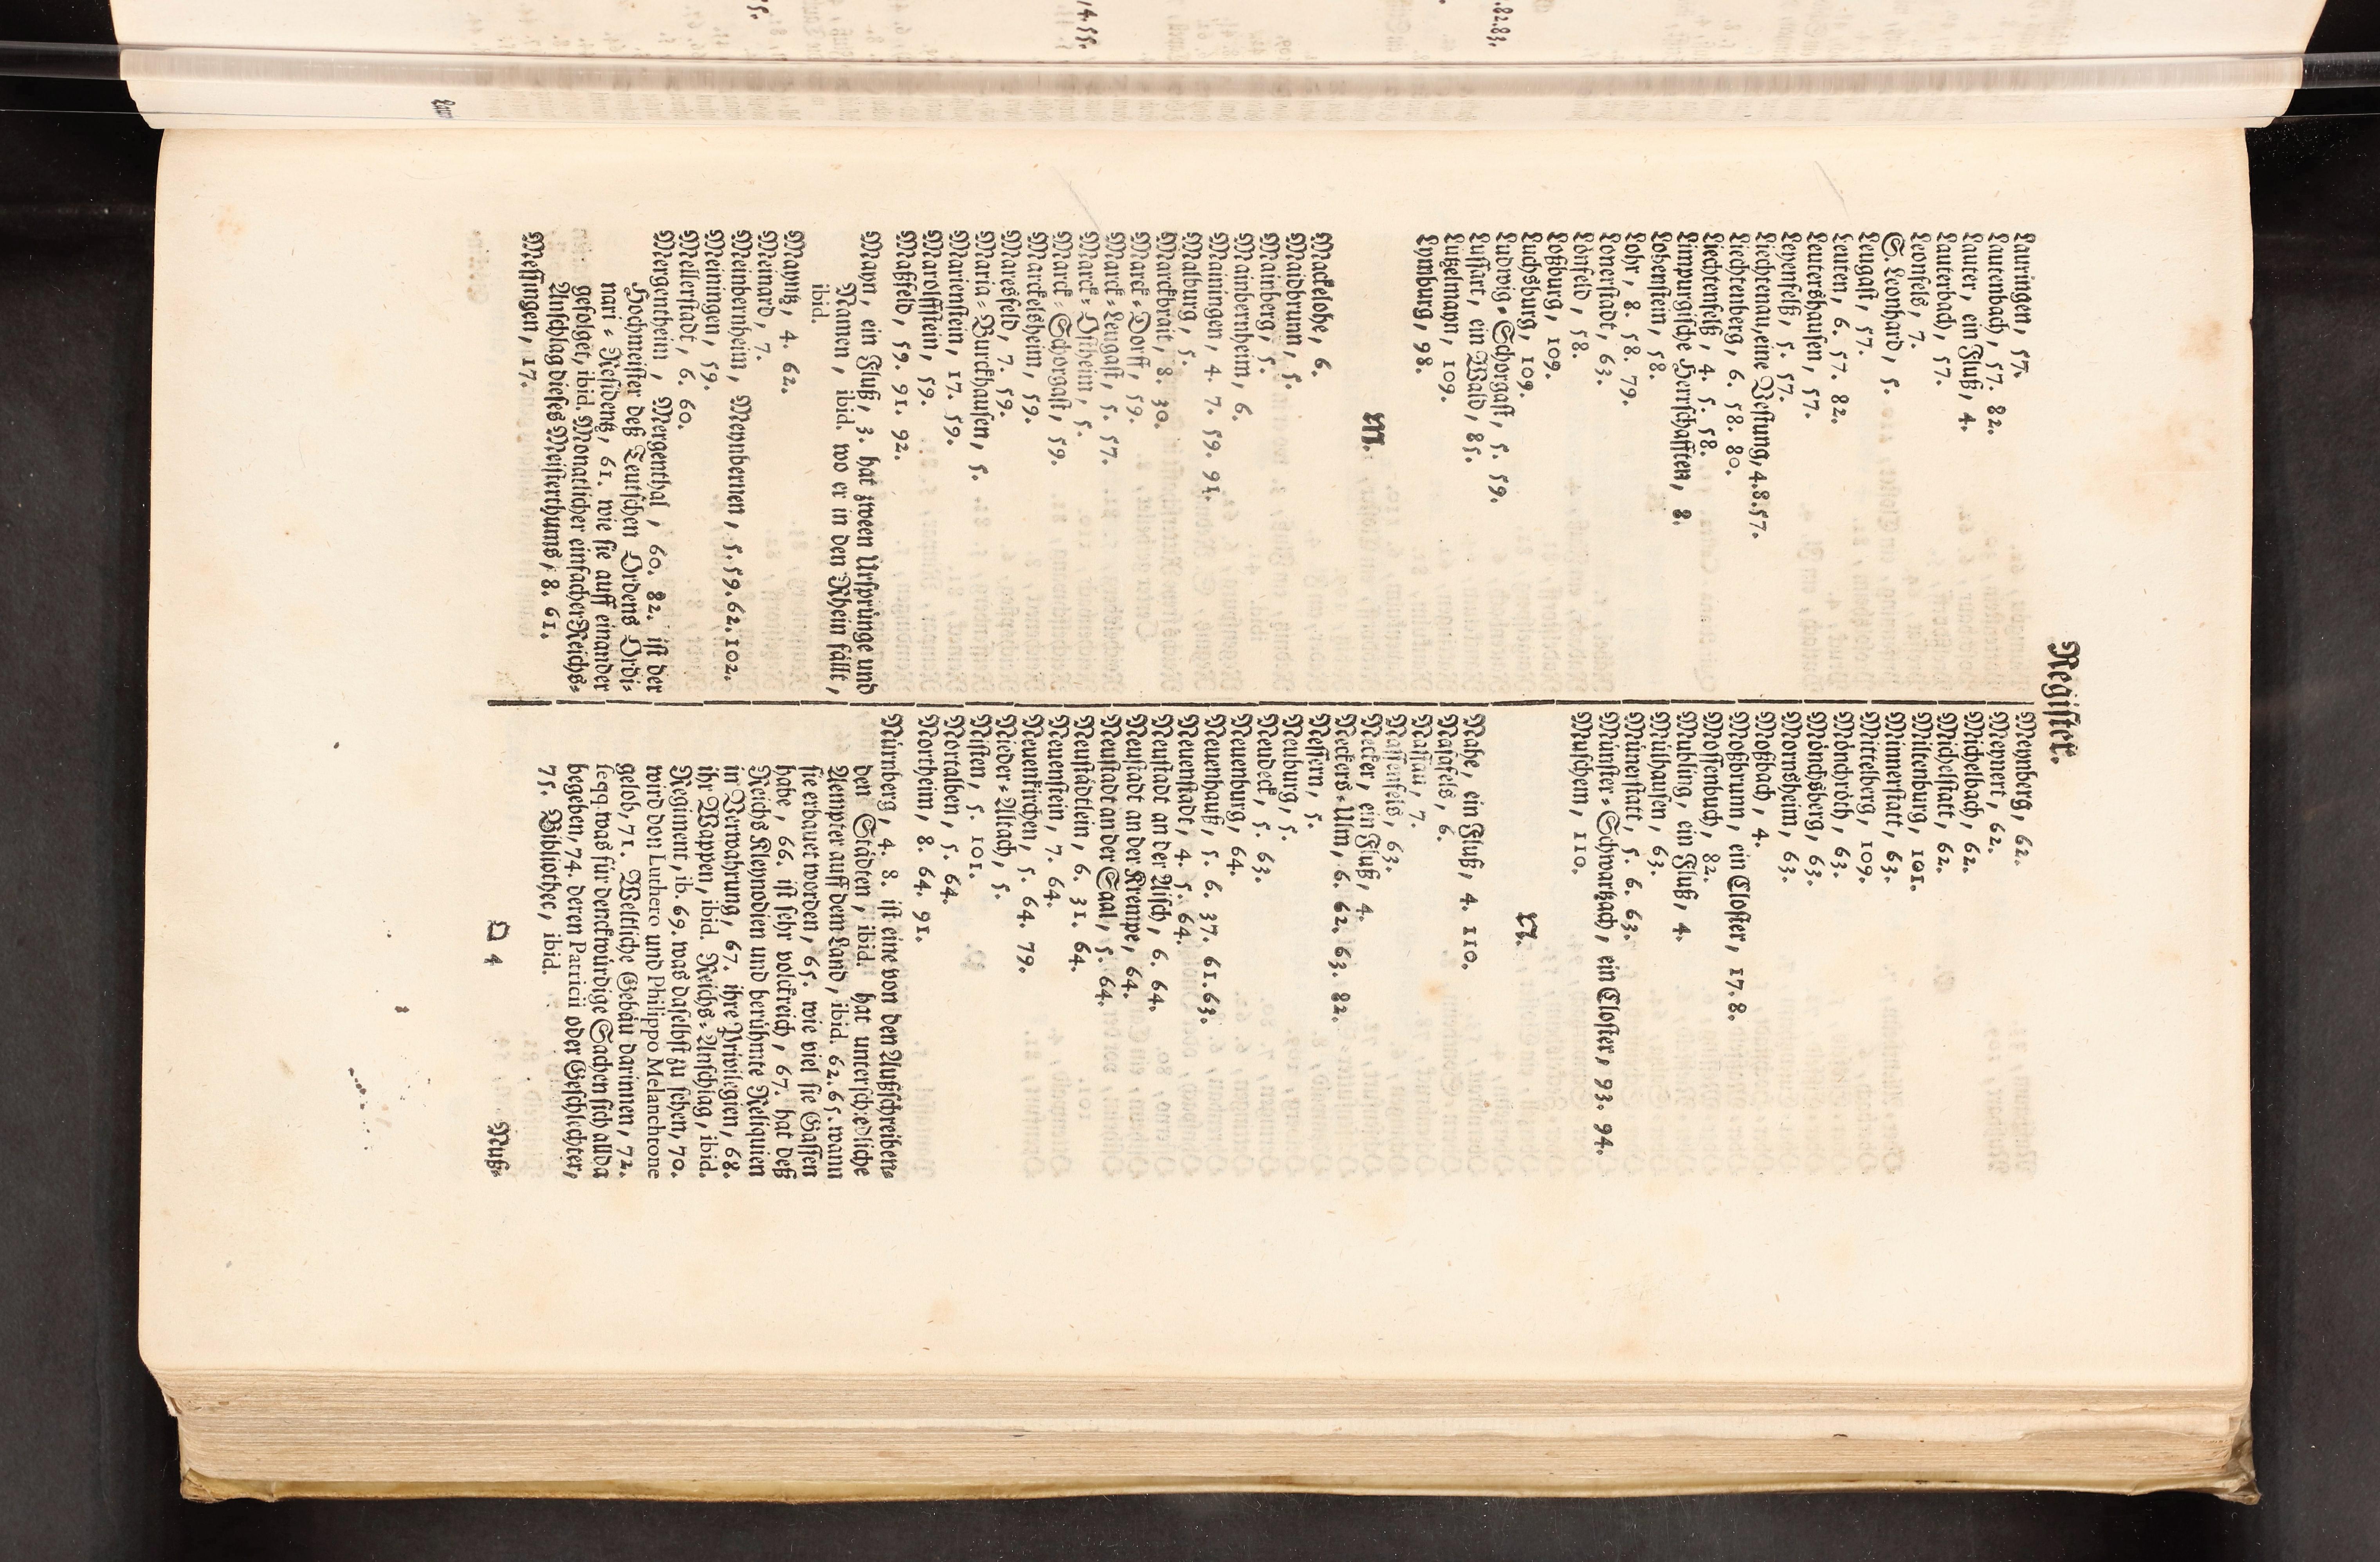 Register.
Lauringen, 57.
Lautenbach, 57. 82.
Lauter, ein Fluß, 4.
Lauterbach, 57.
Leonfels, 7.
S. Leonhard, 5.
Leugast, 57.
Leuten, 6. 57. 82.
Leutershausen, 57.
Leyenfelß, 5. 57.
Liechtenau, eine Vestung, 4. 8. 57.
Liechtenberg, 6. 58. 80.
Liechtenfelß, 4. 5. 58.
Limpurgische Herrschafften, 8.
Lohenstein, 58.
Lohr, 8. 58. 79.
Lonerstadt, 63.
Lönfeld, 58.
Loßburg, 109.
Luchsburg, 109.
Ludwig-Schorgast, 5. 59.
Lussart, ein Wald, 85.
Lutzelmayn, 109.
Lymburg, 98.
M.
Mackelohe, 6.
Maidbrunn, 5.
Mainberg, 5.
Mainbernheim, 6.
Mainingen, 4. 7. 59. 91.
Malburg, 5.
Marckbrait, 8. 30.
Marck-Dorff, 59.
Marck-Leugast, 5. 57.
Marck-Ostheim, 5.
Marck-Schorgast, 59.
Marckelsheim, 59.
Maresfeld, 7. 59.
Maria-Burckhausen, 5.
Marienstein, 17. 59.
Marolffstein, 59.
Maßfeld, 59. 91. 92.
Mayn, ein Fluß, 3. hat zween Ursprünge und
Namen, ibid. wo er in den Rhein fällt,
ibid.
Mayntz, 4. 62.
Meinard, 7.
Meinbernheim, Meynbernen, 5. 59. 62. 102.
Meiningen, 59.
Mellerstadt, 6. 60.
Mergentheim, Mergenthal, 60. 82. ist der
Hochmeister deß Teutschen Ordens Ordi-
nari-Residentz, 61. wie sie auff einander
gefolget, ibid. Monatlicher einfacher Reichs-
Anschlag dieses Meisterthums, 8. 61.
Messingen, 17.
Meynberg, 62.
Meynert, 62.
Michelbach, 62.
Michelstatt, 62.
Miltenburg, 101.
Minnerstatt, 63.
Mittelberg, 109.
Mönchröth, 63.
Mönchsberg, 63.
Mornsheim, 63.
Moßbach, 4.
Moßbrunn, ein Closter, 17. 8.
Mossenbuch, 82.
Mubling, ein Fluß, 4.
Mülhausen, 63.
Münerstatt, 5. 6. 63.
Münster-Schwartzach, ein Closter, 93. 94.
Muschem, 110.
N.
Nahe, ein Fluß, 4. 110.
Nasafels, 6.
Nassau, 7.
Nassenfels, 63.
Necker, ein Fluß, 4.
Neckers-Ulm, 6. 62. 63. 82.
Nestern, 5.
Neuburg, 5.
Neudeck, 5. 63.
Neuenburg, 64.
Neuenhauß, 5. 6. 37. 61. 63.
Neuenstadt, 4. 5. 64.
Neustadt an der Aisch, 6. 64.
Neustadt an der Krempe, 64.
Neustadt an der Saal, 5. 64.
Neustädtlein, 6. 31. 64.
Neuenstein, 7. 64.
Neuenkirchen, 5. 64. 79.
Nieder-Altach, 5.
Nisten, 5. 101.
Nortalben, 5. 64.
Northeim, 8. 64. 91.
Nürnberg, 4. 8. ist eine von den Außschreiben-
den Städten, ibid. hat unterschiedliche
Aempter auff dem Land, ibid. 62. 65. wann
sie erbauet worden, 65. wie viel sie Gassen
habe, 66. ist sehr volckreich, 67. hat deß
Reichs Kleynodien und berühmte Reliquien
in Verwahrung, 67. ihre Privilegien, 68.
ihr Wappen, ibid. Reichs-Anschlag, ibid.
Regiment, ib. 69. was daselbst zu sehen, 70.
wird von Luthero und Philippo Melanchtone
gelob, 71. Weltliche Gebäu darinnen, 72.
seqq. was für denckwürdige Sachen sich allda
begeben, 74. deren Patricii oder Geschlechter,
75. Bibliothec, ibid.
Q 4
Nuß-